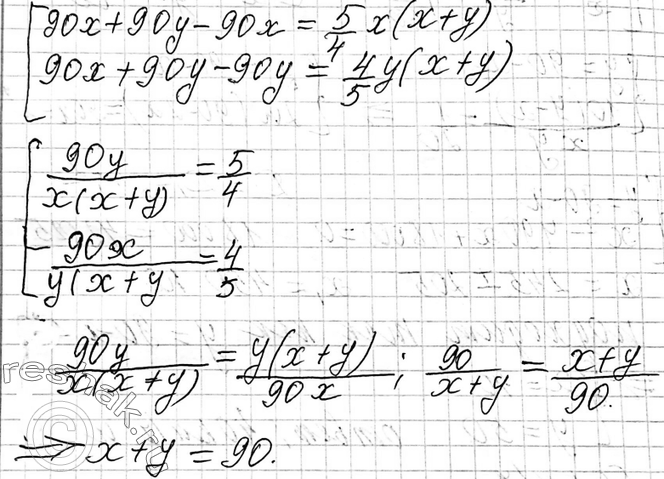 90x+90y-90x=5/4x(x+y)
90x+90y-90y=4/5y(x+y)
90y/x(x+y)=5/4
90x/y(x+y=4/5
90y/x(x+y)=y(x+y)/90x; 90/x+y=x+y/90.
⇒x+y=90.
reshak.ru